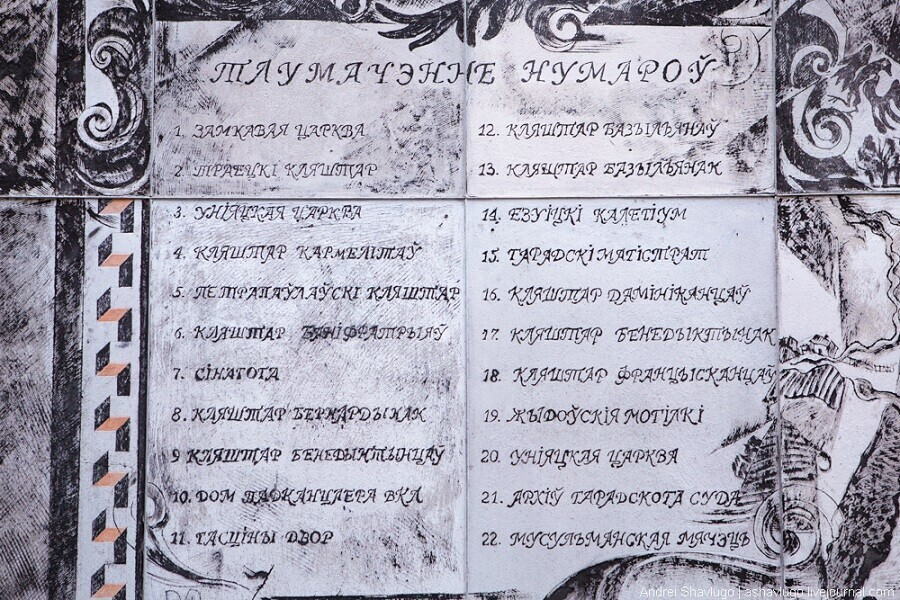 ТЛУМАЧЭННЕ НУМАРОЎ
1. ЗАМКАВАЯ ЦАРКВА
2. ТРАЕЦКІ КЛЯШТАР
3. УНІЯЦКАЯ ЦАРКВА
4. КЛЯШТАР КАРМЕЛІТАЎ
5. ПЕТРАПАЎЛАЎСКІ КЛЯШТАР
6. КЛЯШТАР БАНІФРАТРЫЯЎ
7. СІНАГОГА
8. КЛЯШТАР БЕРНАРДЫНАК
9 КЛЯШТАР БЕНЕДЫКТЫНЦАЎ
10. ДОМ ПАДКАНЦЛЕРА ВКЛ
11. ГАСЦІНЫ ДВОР
12. КЛЯШТАР БАЗЫЛЬЯНАЎ
13. КЛЯШТАР БАЗЫЛЬЯНАК
14. ЕЗУІЦКІ КАЛЕГІУМ
15. ГАРАДСКІ МАГІСТРАТ
16. КЛЯШТАР ДАМІНІКАНЦАЎ
17. КЛЯШТАР БЕНЕДЫКТЫНАК
18. КЛЯШТАР ФРАНЦЫСКАНЦАЎ
19. ЖЫДОЎСКІЯ МОГІЛКІ
20. УНІЯЦКАЯ ЦАРКВА
21. АРХІЎ ГАРАДСКОГА СУДА
22. МУСУЛЬМАНСКАЯ МАЧЭЦЬ
Andrei Shavlugo | ashavlugo.livejournal.com